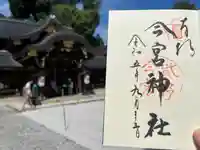 奉拝
今宮神社
令和五年九月十五日